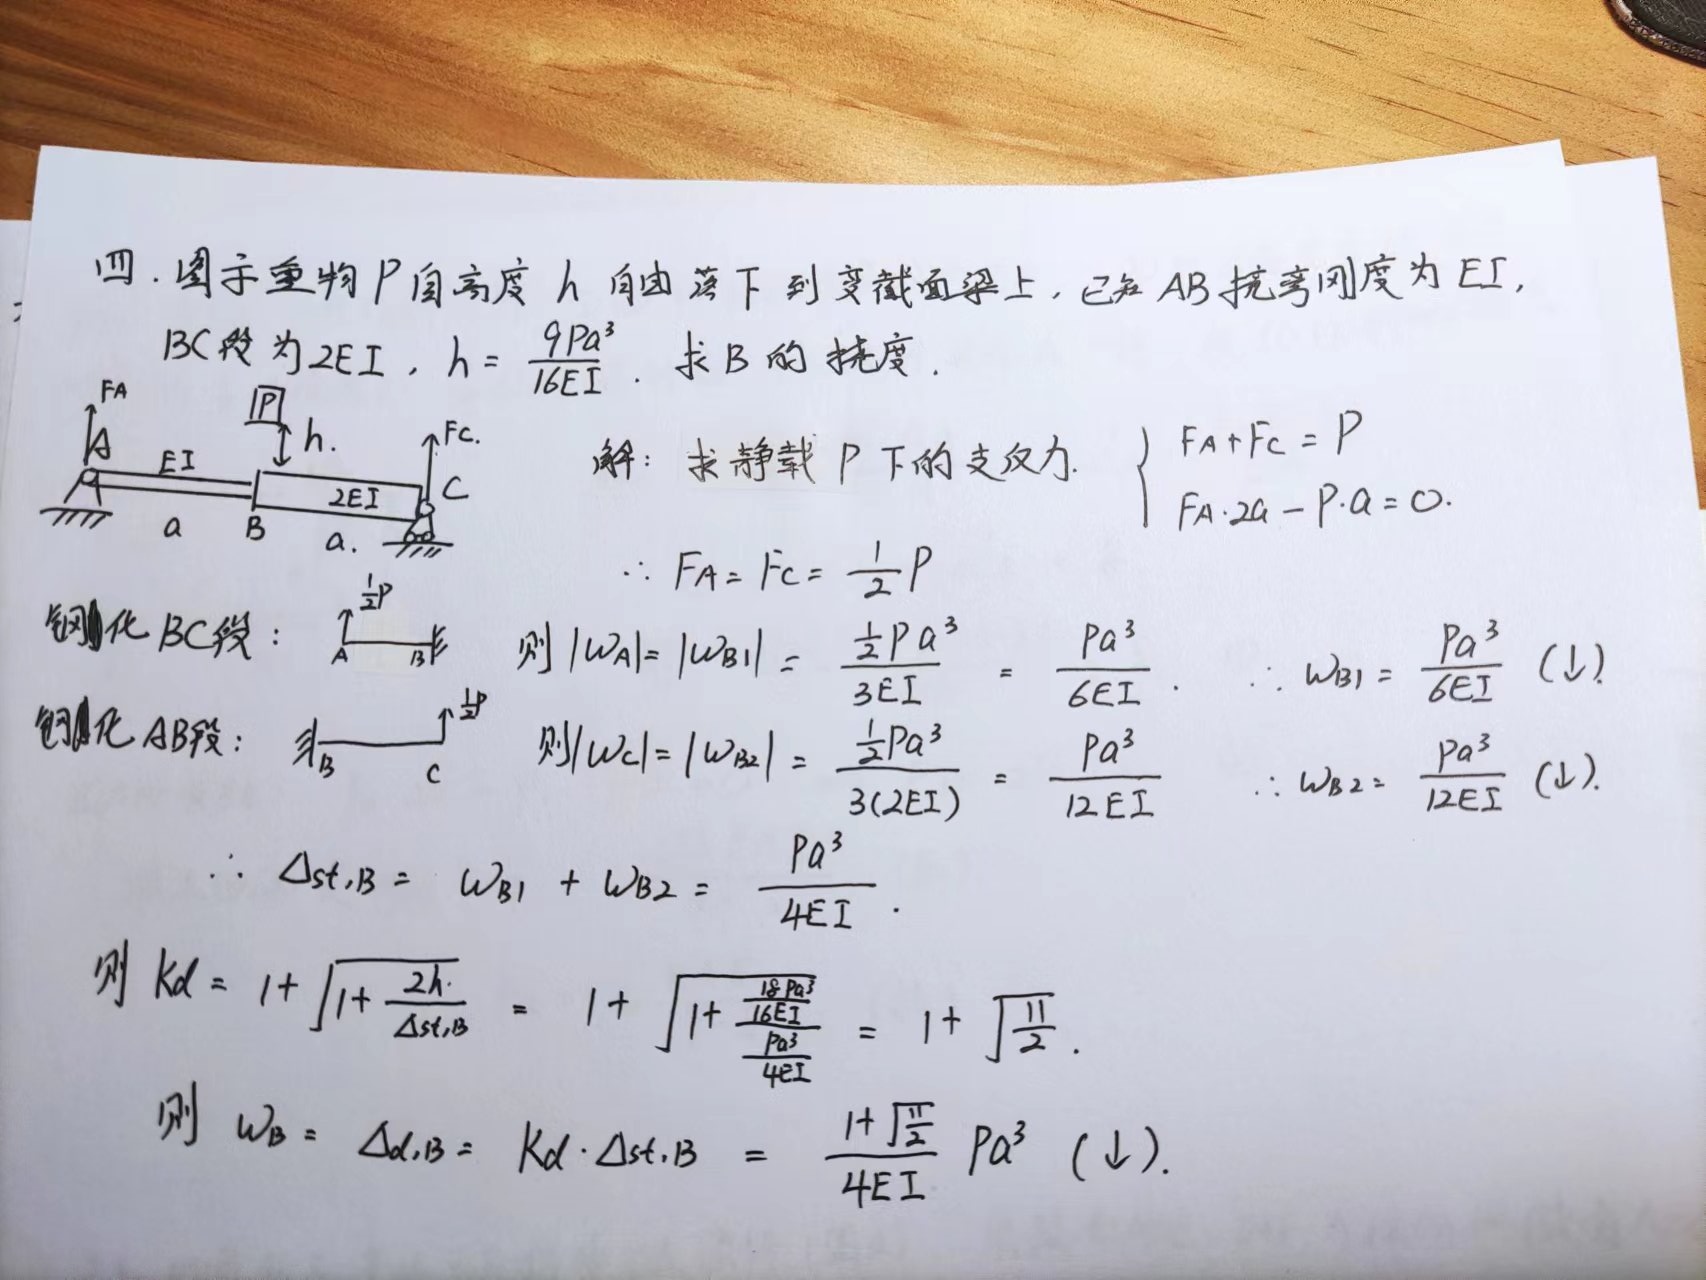 四.图示重物P自高度 h 自由落下到变截面梁上,已知AB抗弯刚度为EI,
BC段为2EI, h = \frac{9Pa^3}{16EI}. 求B的挠度.
FA
P
h.
Fc.
A
EI
2EI
C
a
B
a.
解: 求静载P下的支反力.
{ FA+Fc = P
FA·2a - P·a = 0.
∴ FA = Fc = \frac{1}{2}P
钢化BC段:
\frac{1}{2}P
A
B
则 |WA| = |WB1| = \frac{\frac{1}{2}Pa^3}{3EI} = \frac{Pa^3}{6EI}. ∴ WB1 = \frac{Pa^3}{6EI} (↓).
钢化AB段:
\frac{1}{2}P
B
C
则 |Wc| = |WB2| = \frac{\frac{1}{2}Pa^3}{3(2EI)} = \frac{Pa^3}{12EI} ∴ WB2 = \frac{Pa^3}{12EI} (↓).
∴ Δst,B = WB1 + WB2 = \frac{Pa^3}{4EI}.
则 Kd = 1+\sqrt{1+\frac{2h}{Δst,B}} = 1+\sqrt{1+\frac{\frac{18Pa^3}{16EI}}{\frac{Pa^3}{4EI}}} = 1+\sqrt{\frac{11}{2}}.
则 WB = Δd,B = Kd·Δst,B = \frac{1+\sqrt{\frac{11}{2}}}{4EI} Pa^3 (↓).